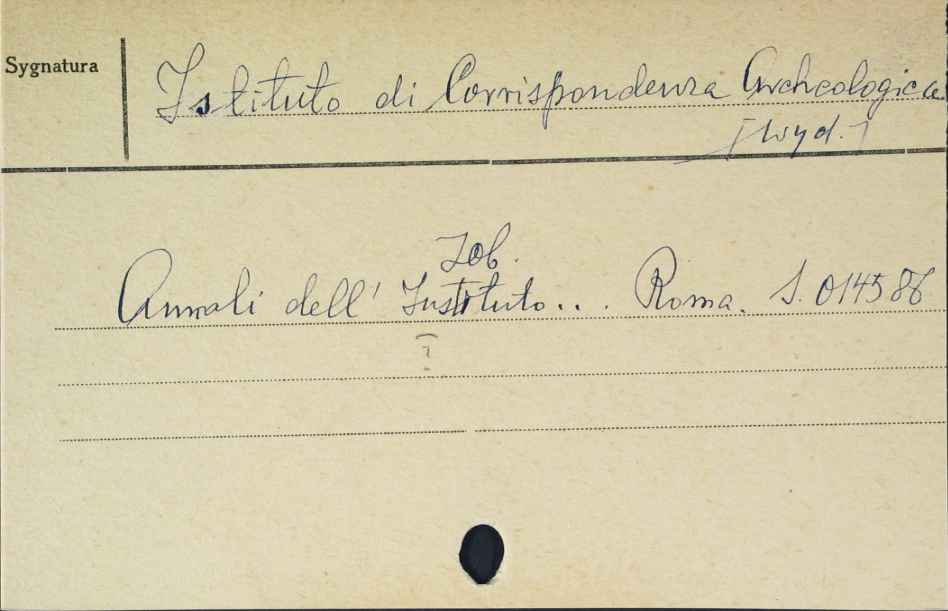 Sygnatura
Istituto di Corrispondenza Archeologica
[wyd.]
Zob.
Annali dell' Instituto... Roma. S. 014586
?